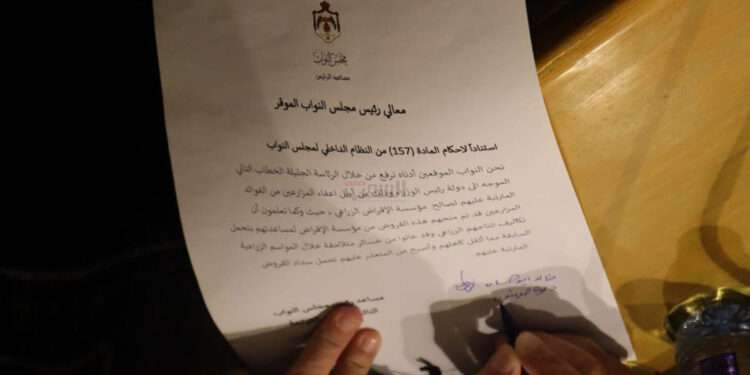 مجلس النواب
مساعد الرئيس
معالي رئيس مجلس النواب الموقر
استناداً لاحكام المادة (157) من النظام الداخلي لمجلس النواب
نحن النواب الموقعين أدناه نرفع من خلال الرئاسة الجليلة الخطاب التالي
الموجه الى دولة رئيس الوزراء وذلك من أجل اعفاء المزارعين من الفوائد
المترتبة عليهم لصالح مؤسسة الإقراض الزراعي ، حيث وكما تعلمون أن
المزارعين قد تم منحهم هذه القروض من مؤسسة الإقراض لمساعدتهم بتحمل
تكاليف انتاجهم الزراعي وقد عانوا من خسائر متلاحقة خلال المواسم الزراعية
السابقة مما أثقل كاهلهم وأصبح من المتعذر عليهم تحمل سداد القروض
المترتبة عليهم
مساعد رئيس مجلس النواب